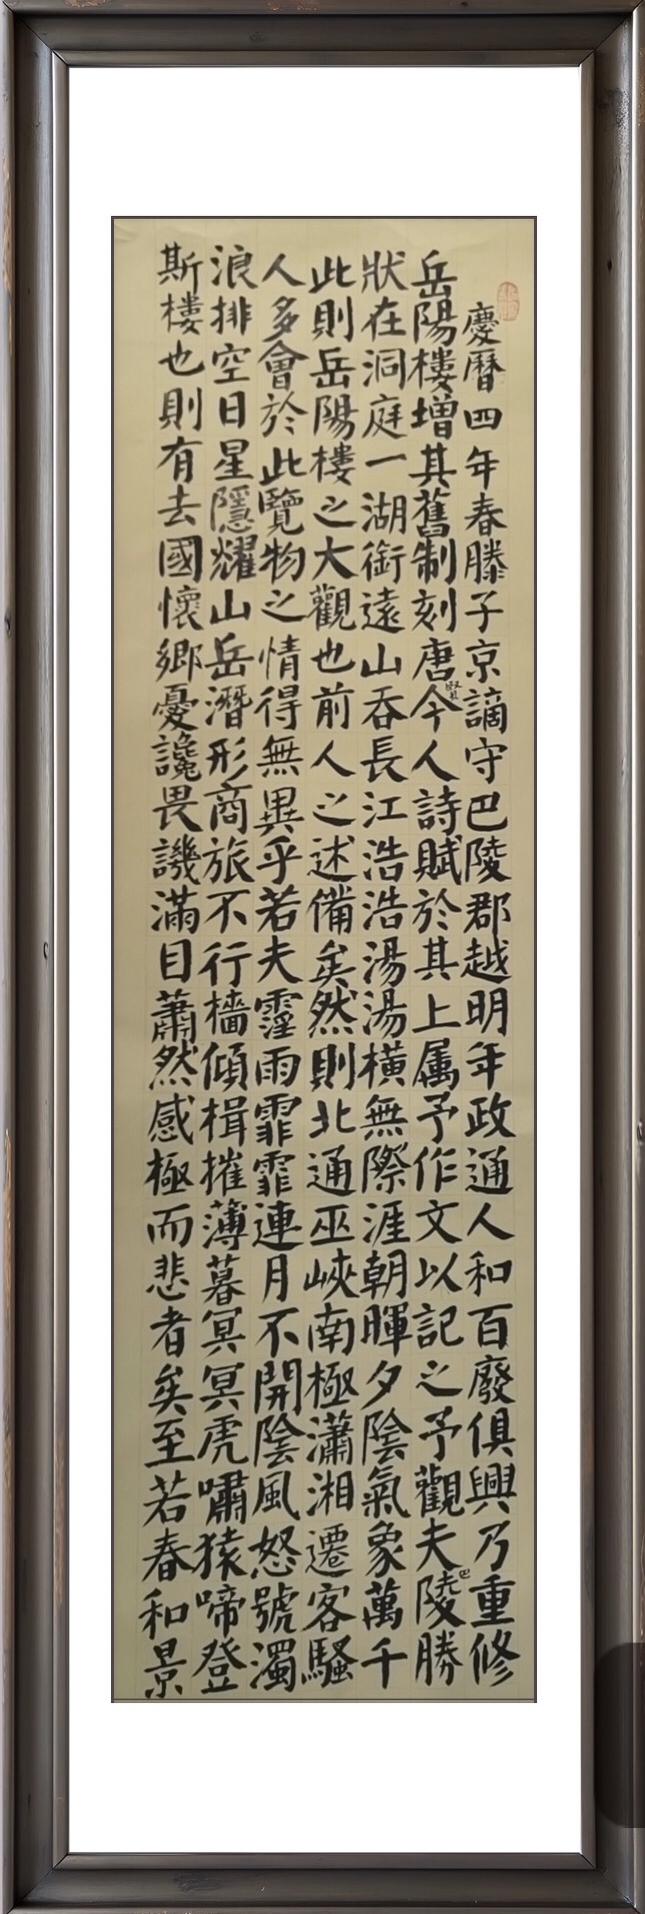 慶曆四年春滕子京謫守巴陵郡越明年政通人和百廢俱興乃重修
岳陽樓增其舊制刻唐賢今人詩賦於其上属予作文以記之予觀夫巴陵勝
狀在洞庭一湖銜遠山吞長江浩浩湯湯橫無際涯朝暉夕陰氣象萬千
此則岳陽樓之大觀也前人之述備矣然則北通巫峽南極瀟湘遷客騷
人多會於此覽物之情得無異乎若夫霪雨霏霏連月不開陰風怒號濁
浪排空日星隱耀山岳潛形商旅不行檣傾楫摧薄暮冥冥虎嘯猿啼登
斯樓也則有去國懷鄉憂讒畏譏滿目蕭然感極而悲者矣至若春和景